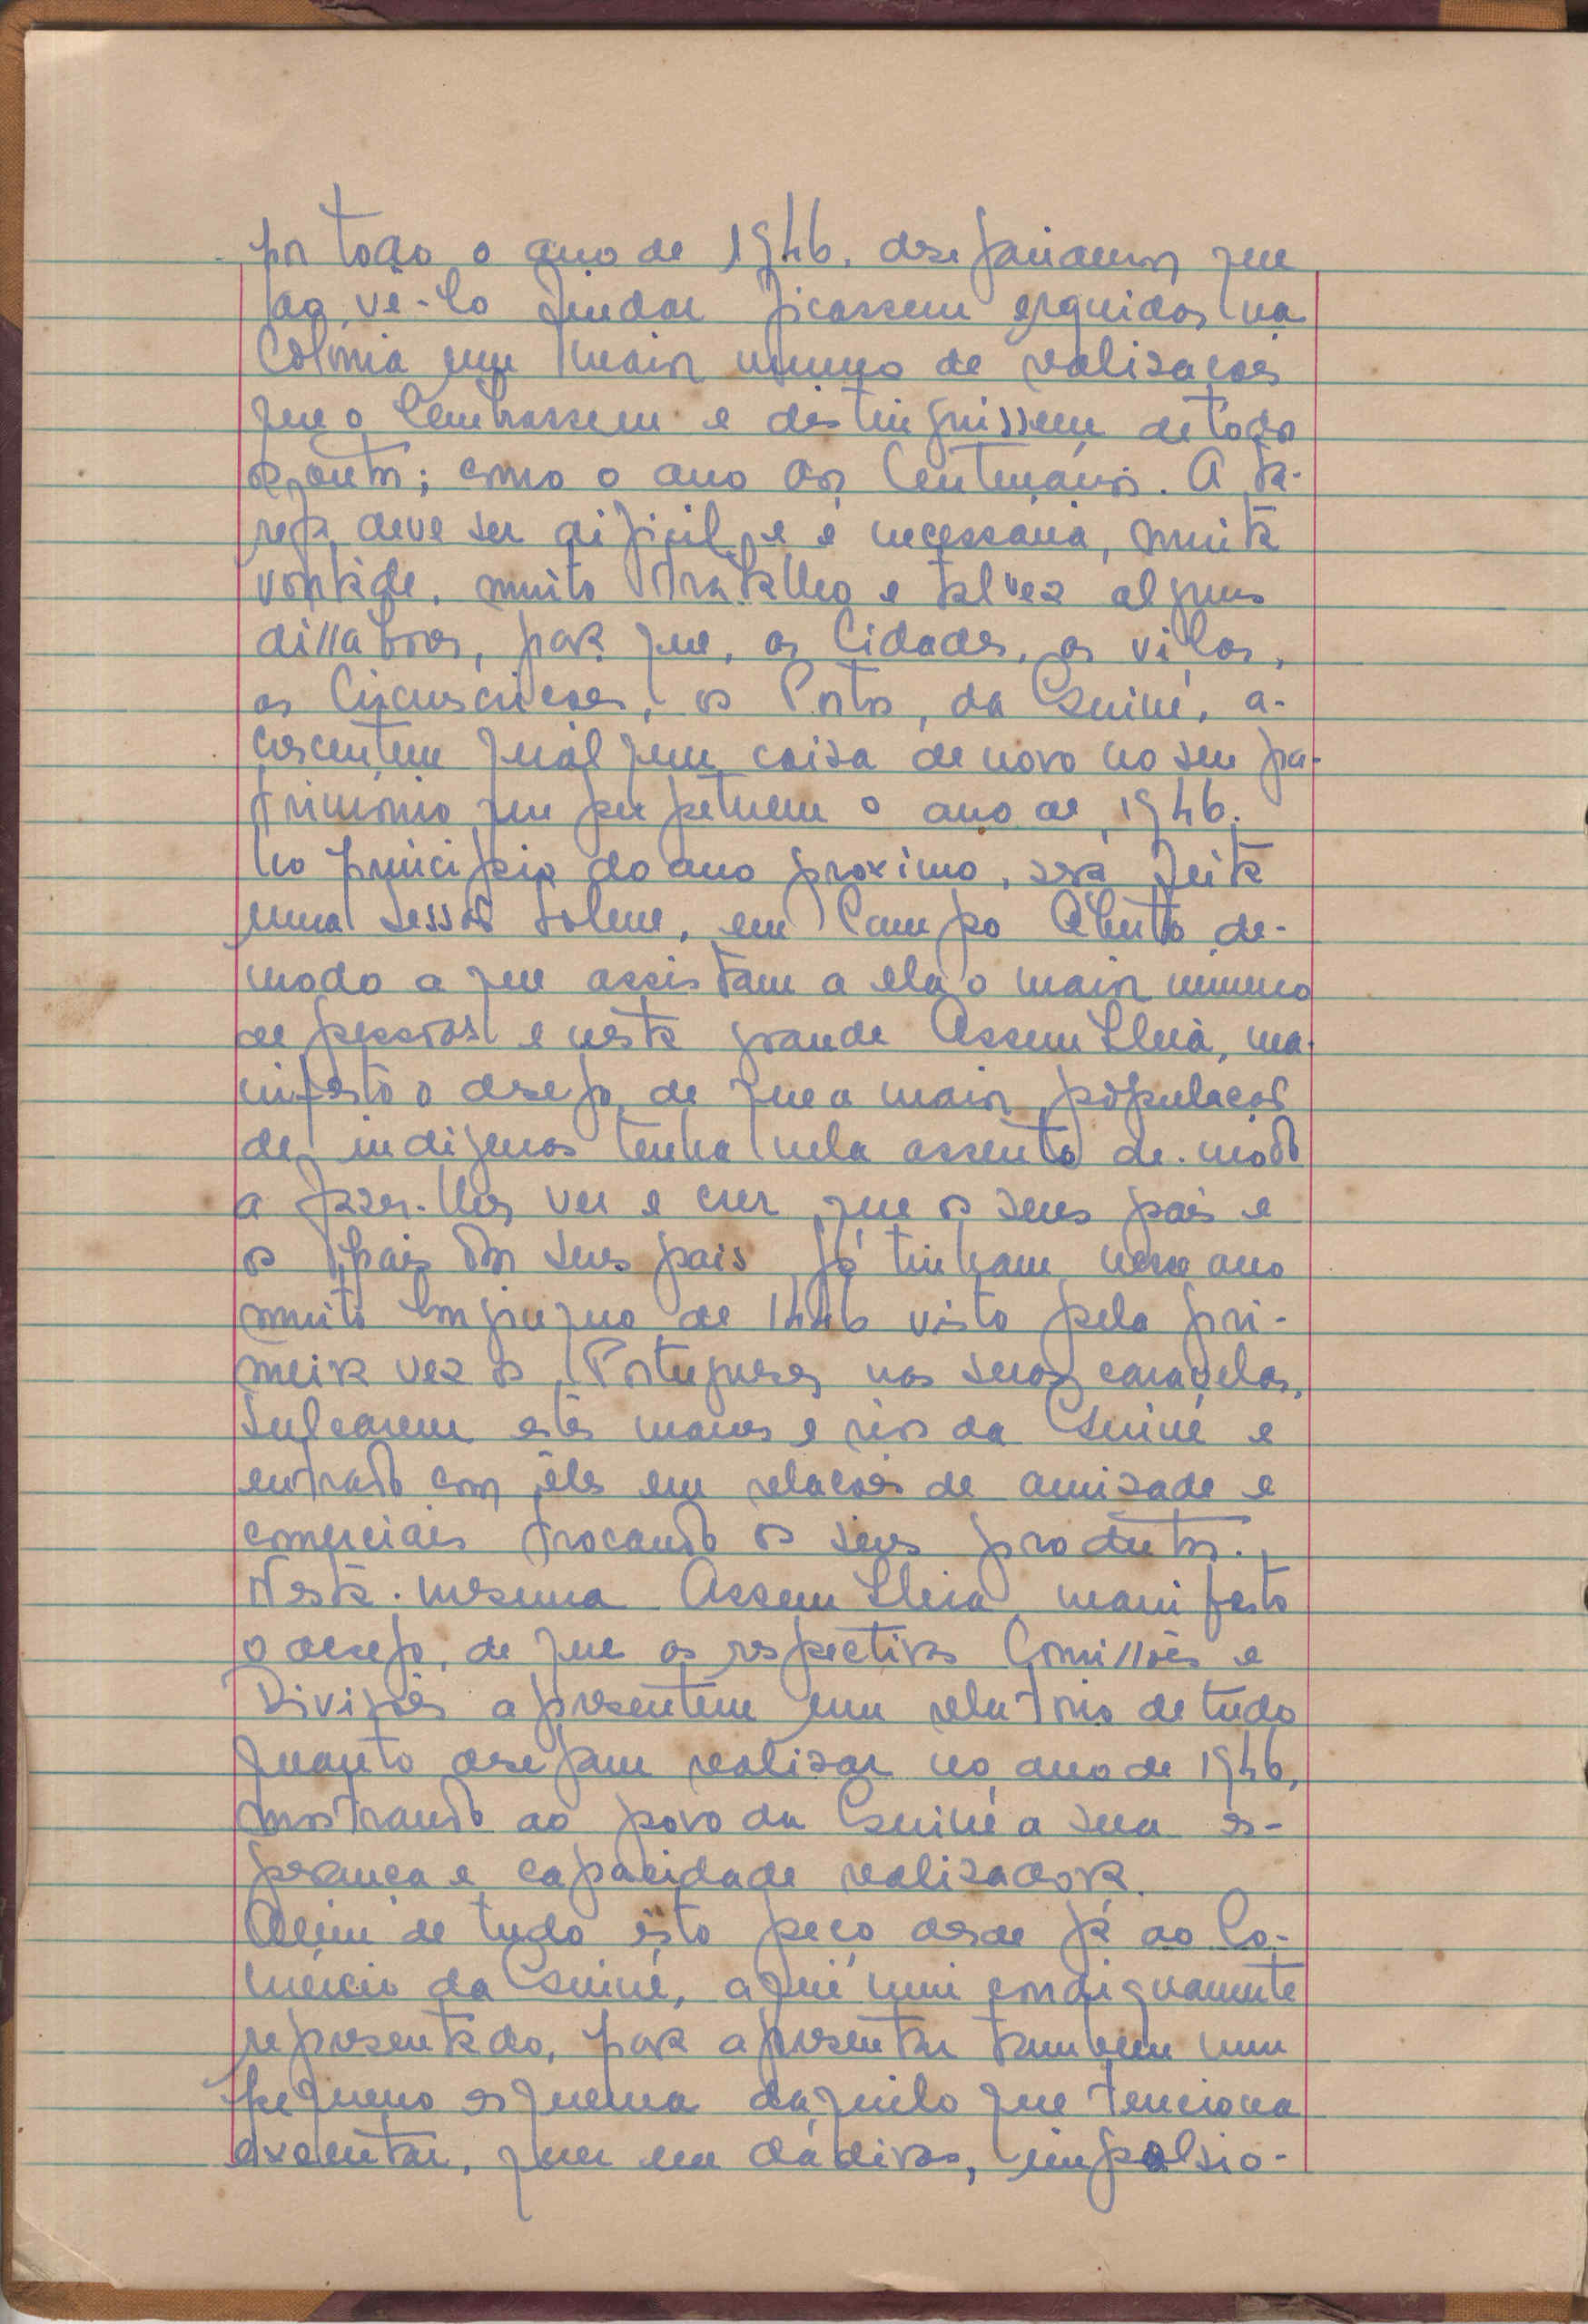 por todo o ano de 1946, desejariamos que
ao vê-lo findar ficassem erguidas na
Colónia um maior numero de realizações
que o lembrassem e distinguissem de todos
os outros; como o ano dos Centenários. A ta-
refa deve ser dificil e é necessária, muita
vontade, muito trabalho e talvez alguns
dissabores, para que, as Cidades, as vilas,
as Circunscrições, os Postos, da Guiné, a-
crescentem qualquer coisa de novo no seu pa-
trimonio que perpetuem o ano de 1946.
No principio do ano proximo, será feita
uma sessão solene, em Campo Aberto de-
modo a que assistam a ela o maior numero
de pessoas e nesta grande Assembleia, ma-
nifesto o desejo de que a maior população
de indigenas tenha nela assento de modo
a fazer-lhes ver e crer que os seus pais e
os pais dos seus pais já tinham nesse ano
muito longinquo de 1446 visto pela pri-
meira vez os Portugueses nas suas caravelas,
sulcarem estes mares e rios da Guiné e
entrado com êles em relações de amizade e
comerciais trocando os seus produtos.
Nesta mesma Assembleia manifesto
o desejo, de que as respectivas Comissões e
Divisões apresentem um relatorio de tudo
quanto desejam realizar no ano de 1946,
mostrando ao povo da Guiné a sua es-
perança e capacidade realizadora.
Além de tudo isto peço desde já ao Co-
mércio da Guiné, aqui mui condignamente
representado, para apresentar tambem um
pequeno esquema daquilo que tenciona
executar, quer em dádivas, impulsio-